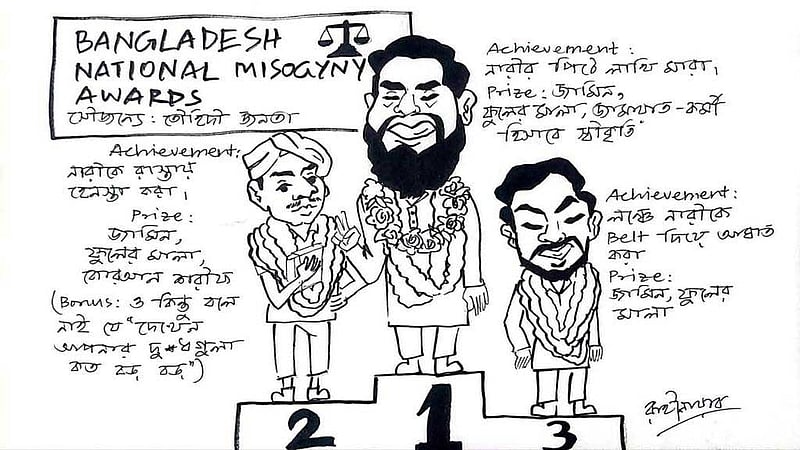 BANGLADESH
NATIONAL MISOGYNY
AWARDS
সৌজন্যে : তৌহিদী জনতা
Achievement :
নারীর পিঠে লাথি মারা।
Prize: জামিন,
ফুলের মালা, জামায়াত-কর্মী
হিসাবে স্বীকৃতি
Achievement:
নারীকে রাস্তায়
হেনস্তা করা।
Prize:
জামিন,
ফুলের মালা,
কোরআন শরীফ
(Bonus: ও কিন্তু বলে
নাই যে "দেখেন
আপনার দু*ধগুলা
কত বড় বড়")
Achievement:
লঞ্চে নারীকে
Belt দিয়ে আঘাত
করা
Prize:
জামিন, ফুলের
মালা
2
1
3